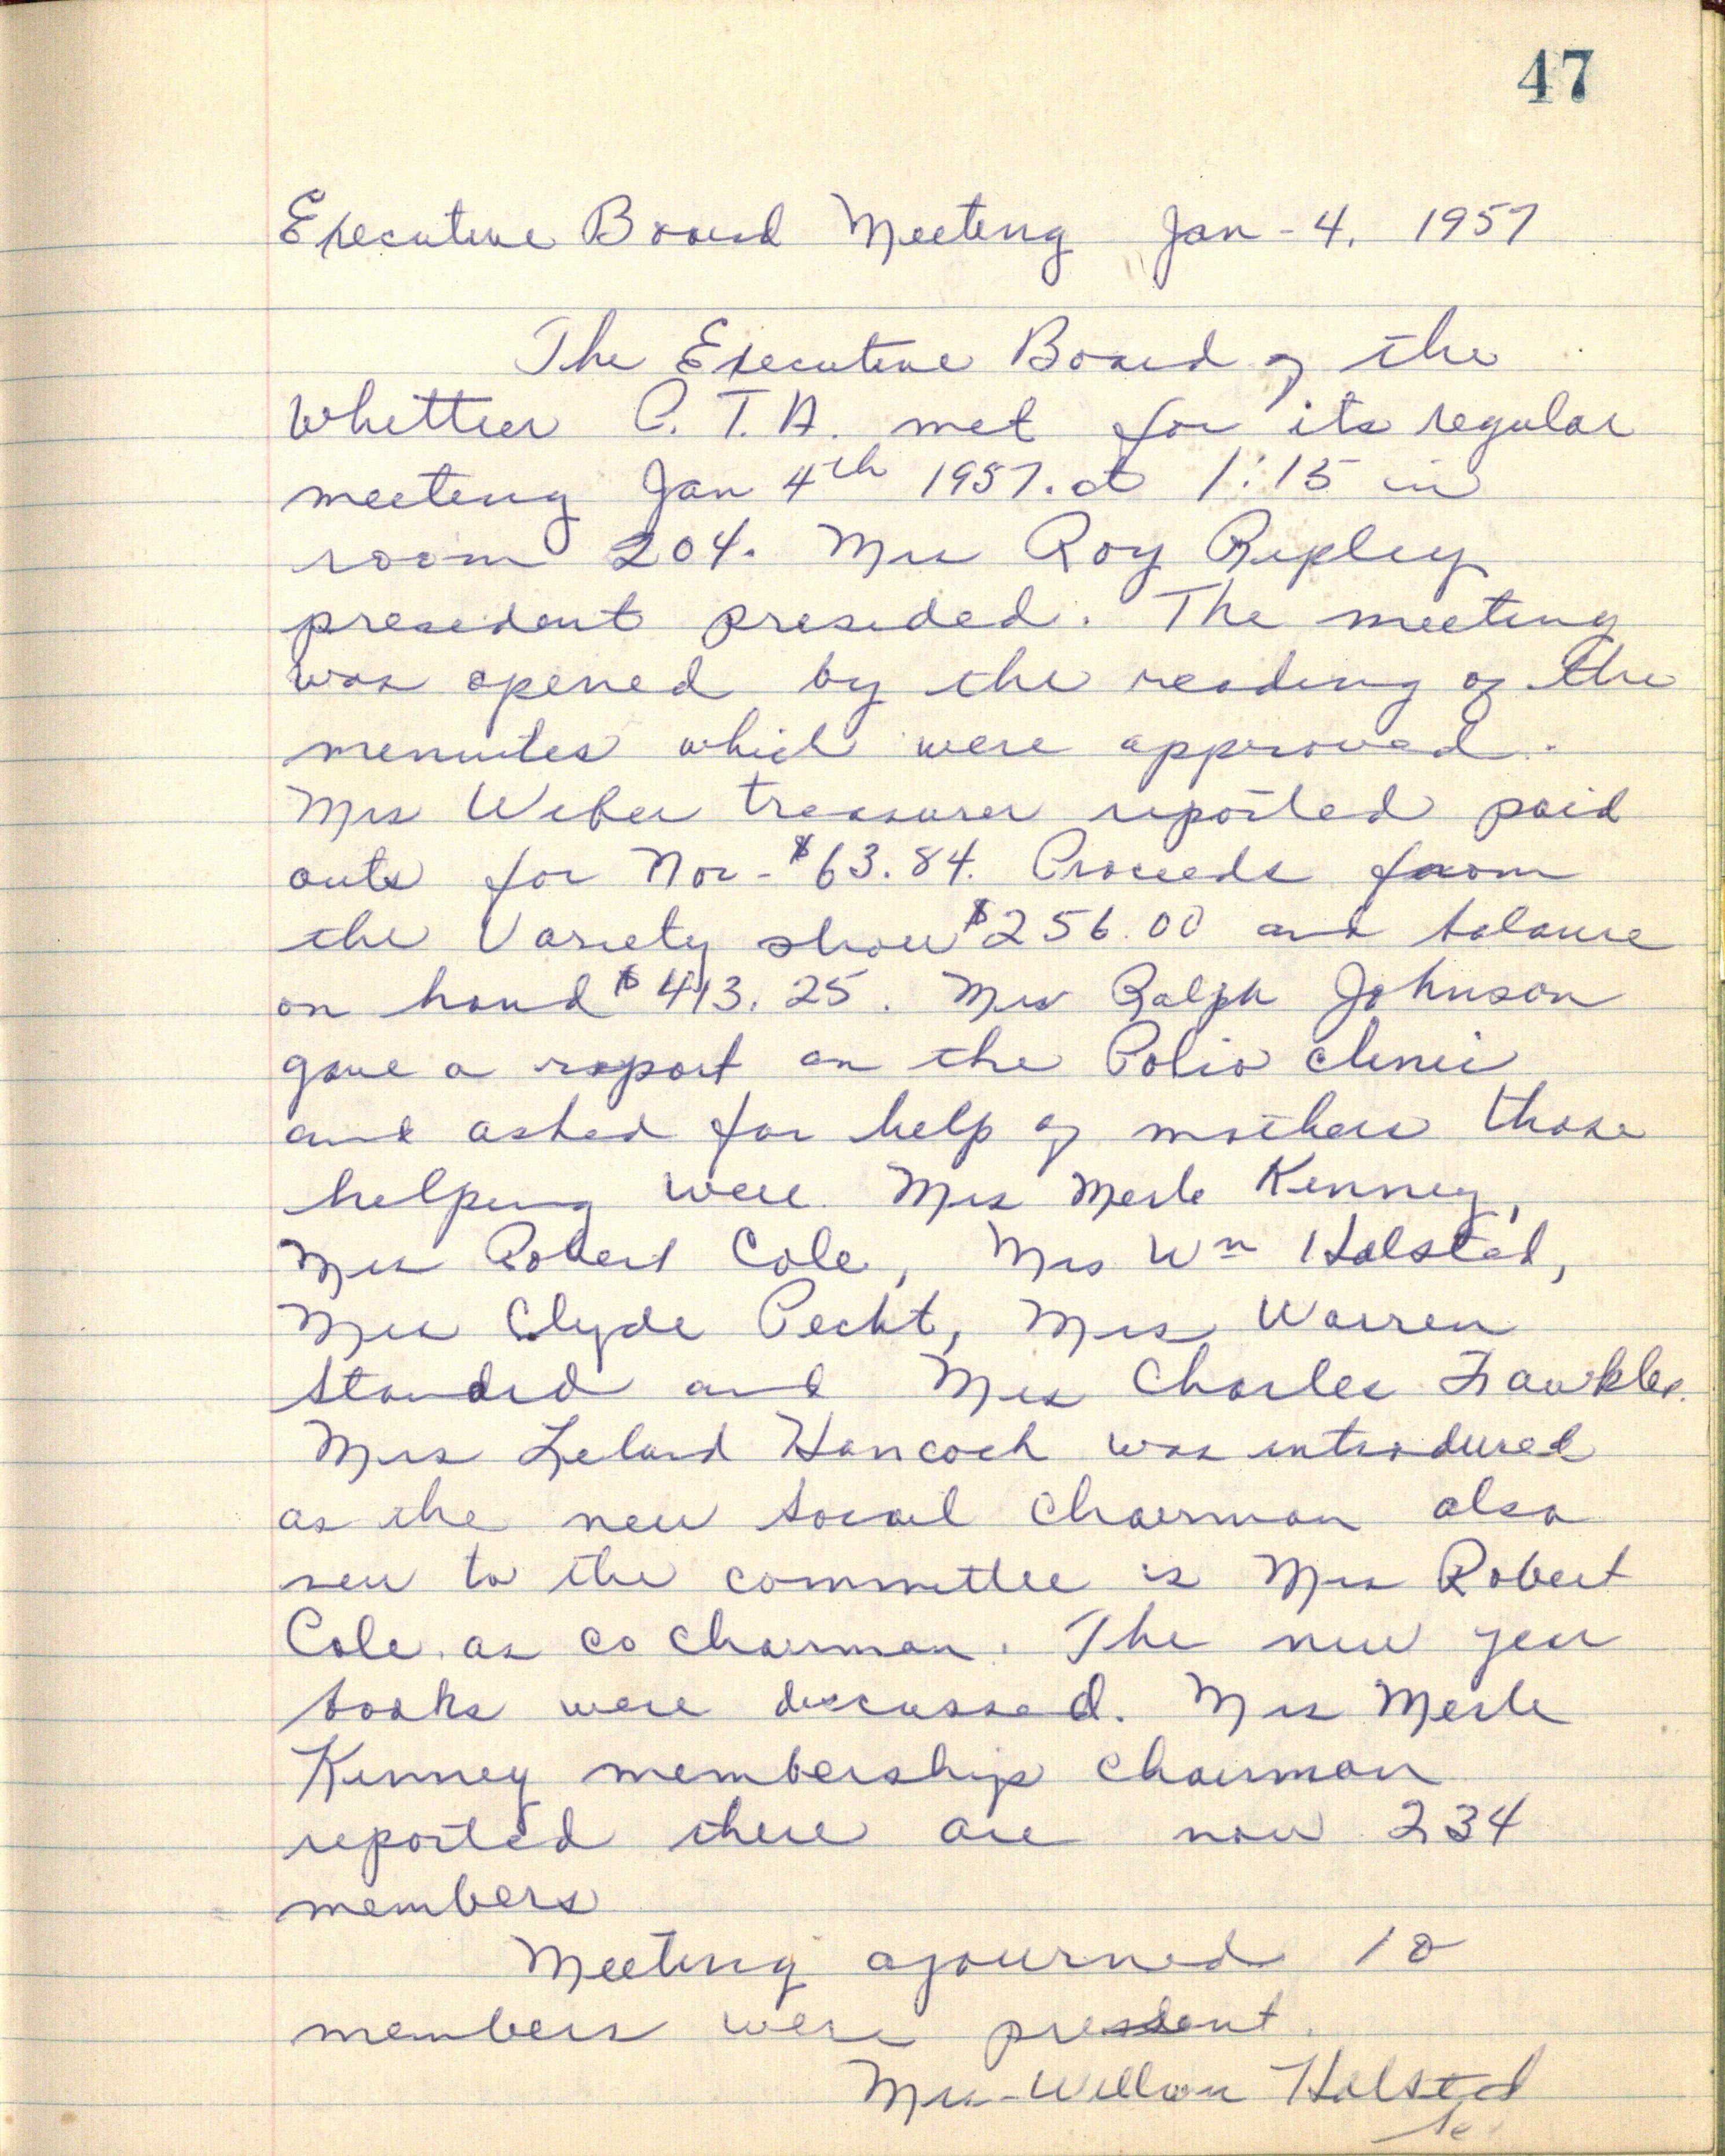 47
Executive Board Meeting Jan - 4, 1957
The Executive Board of the
Whittier P. T. A. met for its regular
meeting Jan 4th 1957. at 1:15 in
room 204. Mrs Roy Ripley
president presided. The meeting
was opened by the reading of the
menuites which were approved.
Mrs Weber treasurer reported paid
outs for Nov - $63.84. Proceeds from
the Variety show $256.00 and balance
on hand $413.25. Mrs Ralph Johnson
gave a report on the Polio clinic
and asked for help of mothers those
helping were Mrs Merle Kenney,
Mrs Robert Cole, Mrs Wm Halsted,
Mrs Clyde Pecht, Mrs Warren
Standid and Mrs Charles
Mrs Leland Hancock was introduced
as the new social chairman also
new to the committee is Mrs Robert
Cole. as co chairman. The new year
books were discussed. Mrs Merle
Kenney membership chairman
reported there are now 234
members
Meeting ajourned 10
members were present.
Mrs - William Halsted